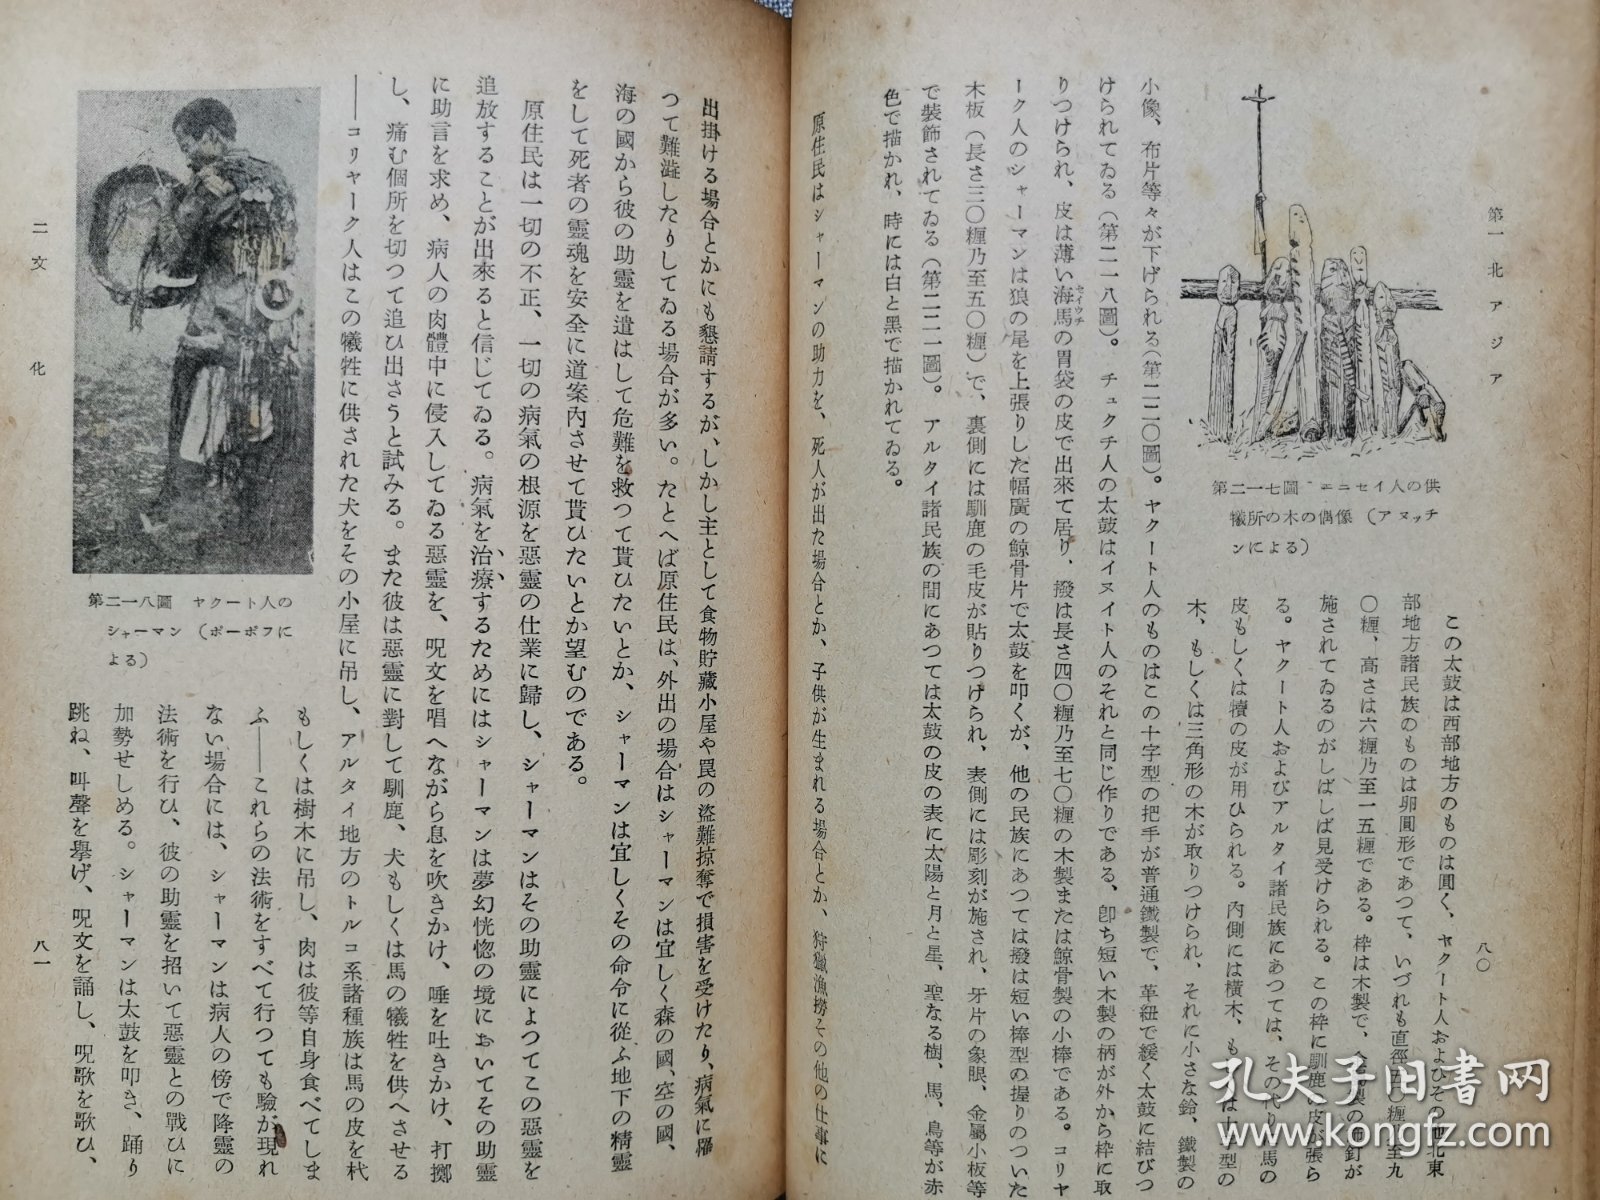 第一　北アジア
八〇
第二一七圖　エニセイ人の供
犧所の木の偶像（アヌッチ
ンによる）
この太鼓は西部地方のものは圓く、ヤクート人およびその他北東
部地方諸民族のものは卵圓形であつて、いづれも直徑五〇糎乃至九
〇糎、高さは六糎乃至一五糎である。枠は木製で、金屬製の飾釘が
施されてゐるのがしばしば見受けられる。この枠に馴鹿の皮が張ら
る。ヤクート人およびアルタイ諸民族にあつては、その代りに馬の
皮もしくは犢の皮が用ひられる。內側には橫木、もしくは十字型の
木、もしくは三角形の木が取りつけられ、それに小さな鈴、鐵製の
小像、布片等々が下げられる（第二二〇圖）。ヤクート人のものはこの十字型の把手が普通鐵製で、革紐で緩く太鼓に結びつ
けられてゐる（第二一八圖）。チュクチ人の太鼓はイヌイト人のそれと同じ作りである、卽ち短い木製の柄が外から枠に取
りつけられ、皮は薄い海馬の胃袋の皮で出來て居り、撥は長さ四〇糎乃至七〇糎の木製または鯨骨製の小棒である。コリヤ
セイウチ
ーク人のシャーマンは狼の尾を上張りした幅廣の鯨骨片で太鼓を叩くが、他の民族にあつては撥は短い棒型の握りのついた
木板（長さ三〇糎乃至五〇糎）で、裏側には馴鹿の毛皮が貼りつけられ、表側には彫刻が施され、牙片の象眼、金屬小板等
で裝飾されてゐる（第二二一圖）。アルタイ諸民族の間にあつては太鼓の皮の表に太陽と月と星、聖なる樹、馬、鳥等が赤
色で描かれ、時には白と黑で描かれてゐる。
原住民はシャーマンの助力を、死人が出た場合とか、子供が生まれる場合とか、狩獵漁撈その他の仕事に
出掛ける場合とかにも懇請するが、しかし主として食物貯藏小屋や罠の盜難掠奪で損害を受けたり、病氣に罹
つて難澁したりしてゐる場合が多い。たとへば原住民は、外出の場合はシャーマンは宜しく森の國、空の國、
海の國から彼の助靈を遣はして危難を救つて貰ひたいとか、シャーマンは宜しくその命令に從ふ地下の精靈
をして死者の靈魂を安全に道案內させて貰ひたいとか望むのである。
原住民は一切の不正、一切の病氣の根源を惡靈の仕業に歸し、シャーマンはその助靈によつてこの惡靈を
追放することが出來ると信じてゐる。病氣を治療するためにはシャーマンは夢幻恍惚の境においてその助靈
に助言を求め、病人の肉體中に侵入してゐる惡靈を、呪文を唱へながら息を吹きかけ、唾を吐きかけ、打擲
し、痛む個所を切つて追ひ出さうと試みる。また彼は惡靈に對して馴鹿、犬もしくは馬の犧牲を供へさせる
――コリャーク人はこの犧牲に供された犬をその小屋に吊し、アルタイ地方のトルコ系諸種族は馬の皮を杙
もしくは樹木に吊し、肉は彼等自身食べてしま
ふ――これらの法術をすべて行つても驗が現れ
ない場合には、シャーマンは病人の傍で降靈の
法術を行ひ、彼の助靈を招いて惡靈との戰ひに
加勢せしめる。シャーマンは太鼓を叩き、踊り
跳ね、叫聲を擧げ、呪文を誦し、呪歌を歌ひ、
第二一八圖　ヤクート人の
シャーマン（ポーポフに
よる）
二　文化
八一
孔夫子旧書网
www.kongfz.com